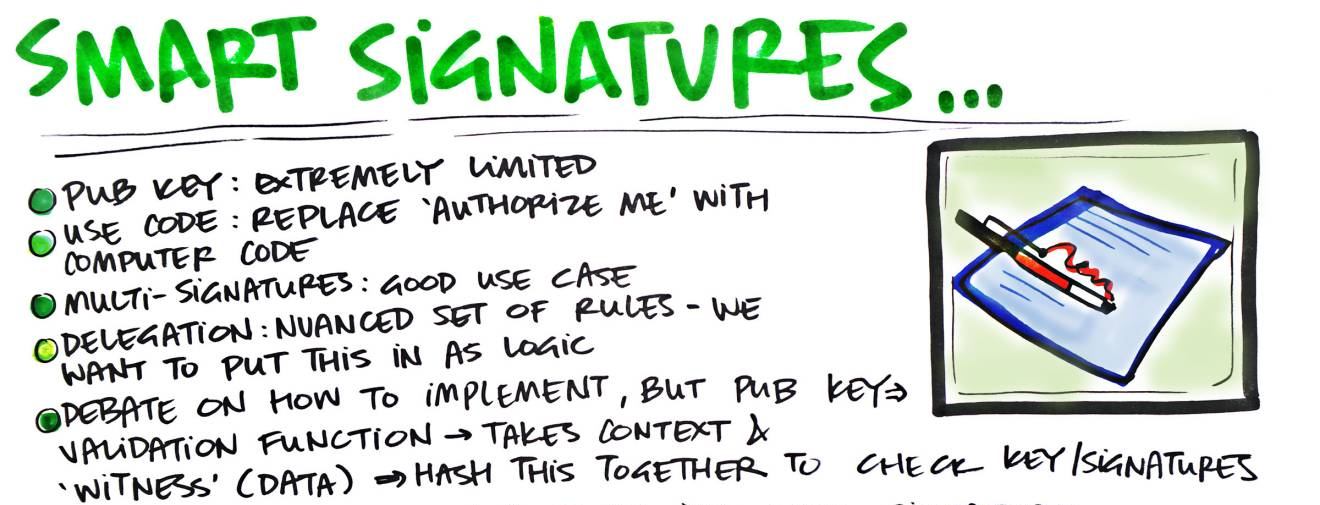 SMART SIGNATURES...
PUB KEY: EXTREMELY LIMITED
USE CODE: REPLACE 'AUTHORIZE ME' WITH
COMPUTER CODE
MULTI-SIGNATURES: GOOD USE CASE
DELEGATION: NUANCED SET OF RULES - WE
WANT TO PUT THIS IN AS LOGIC
DEBATE ON HOW TO IMPLEMENT, BUT PUB KEY⇒
VALIDATION FUNCTION → TAKES CONTEXT &
'WITNESS' (DATA) ⇒ HASH THIS TOGETHER TO CHECK KEY/SIGNATURES